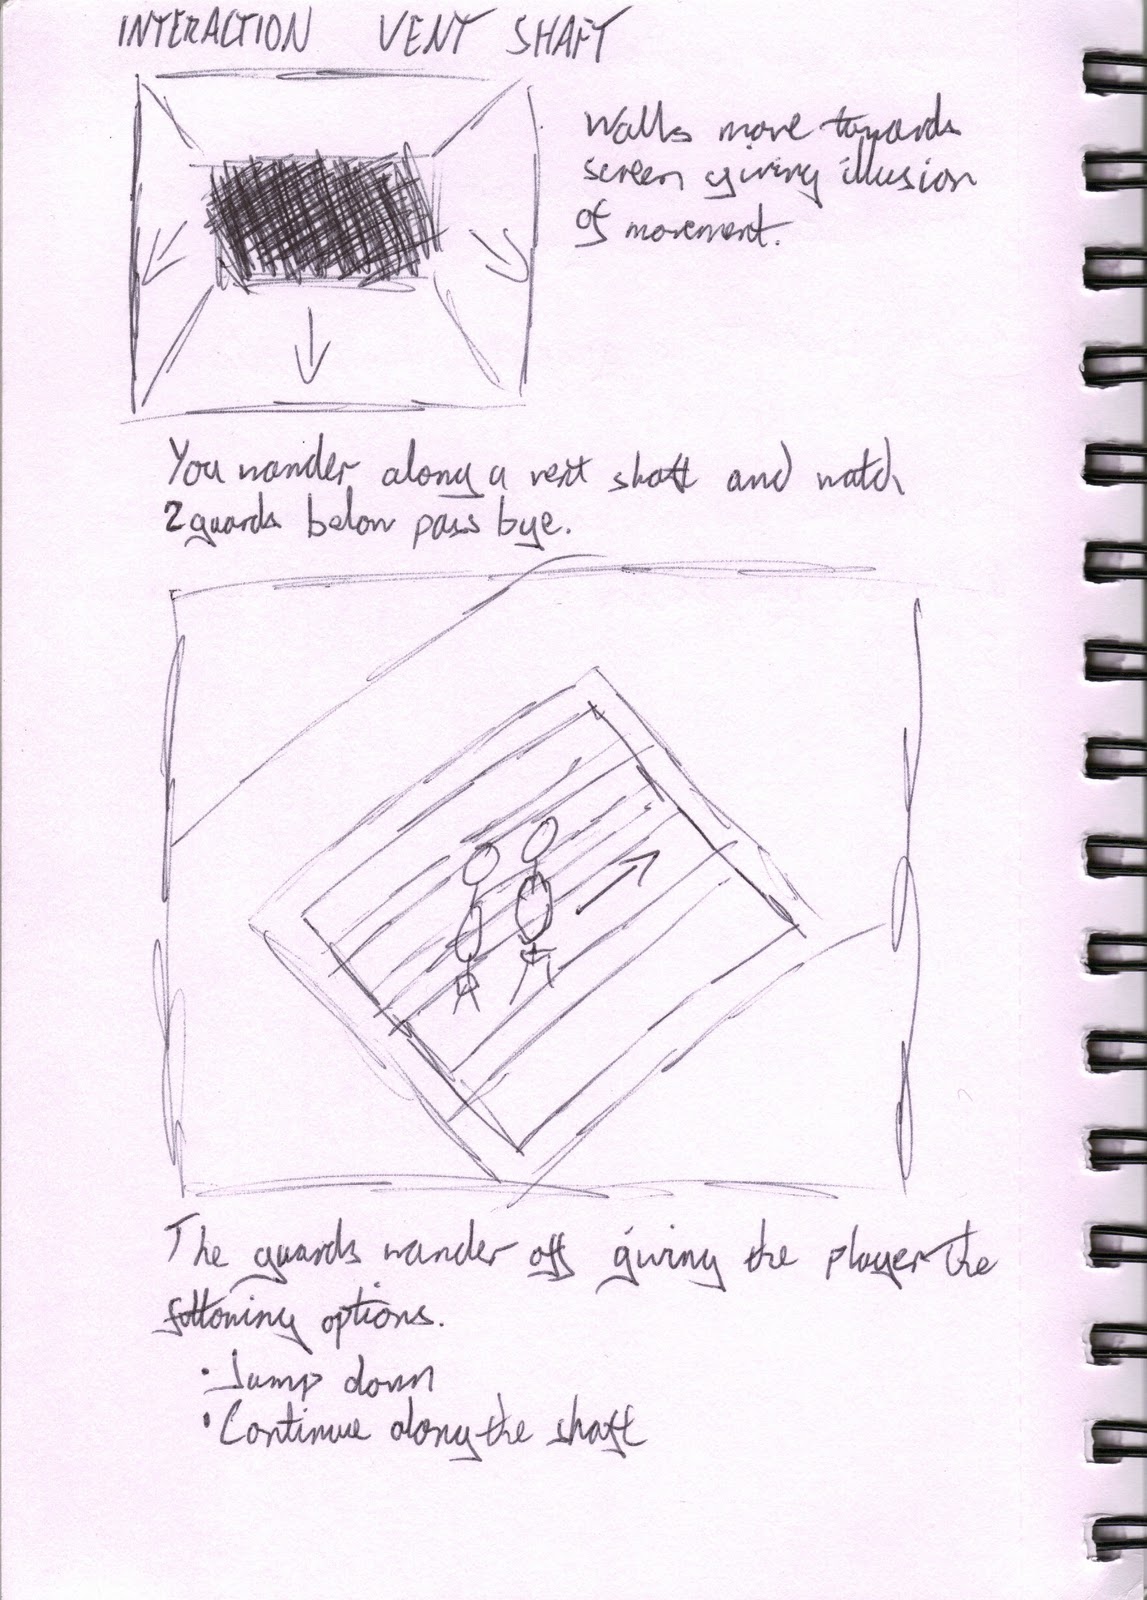 INTERACTION VENT SHAFT
Walls move towards
screen giving illusion
of movement.
You wander along a vent shaft and watch
2 guards below pass bye.
The guards wander off giving the player the
following options.
• Jump down
• Continue along the shaft